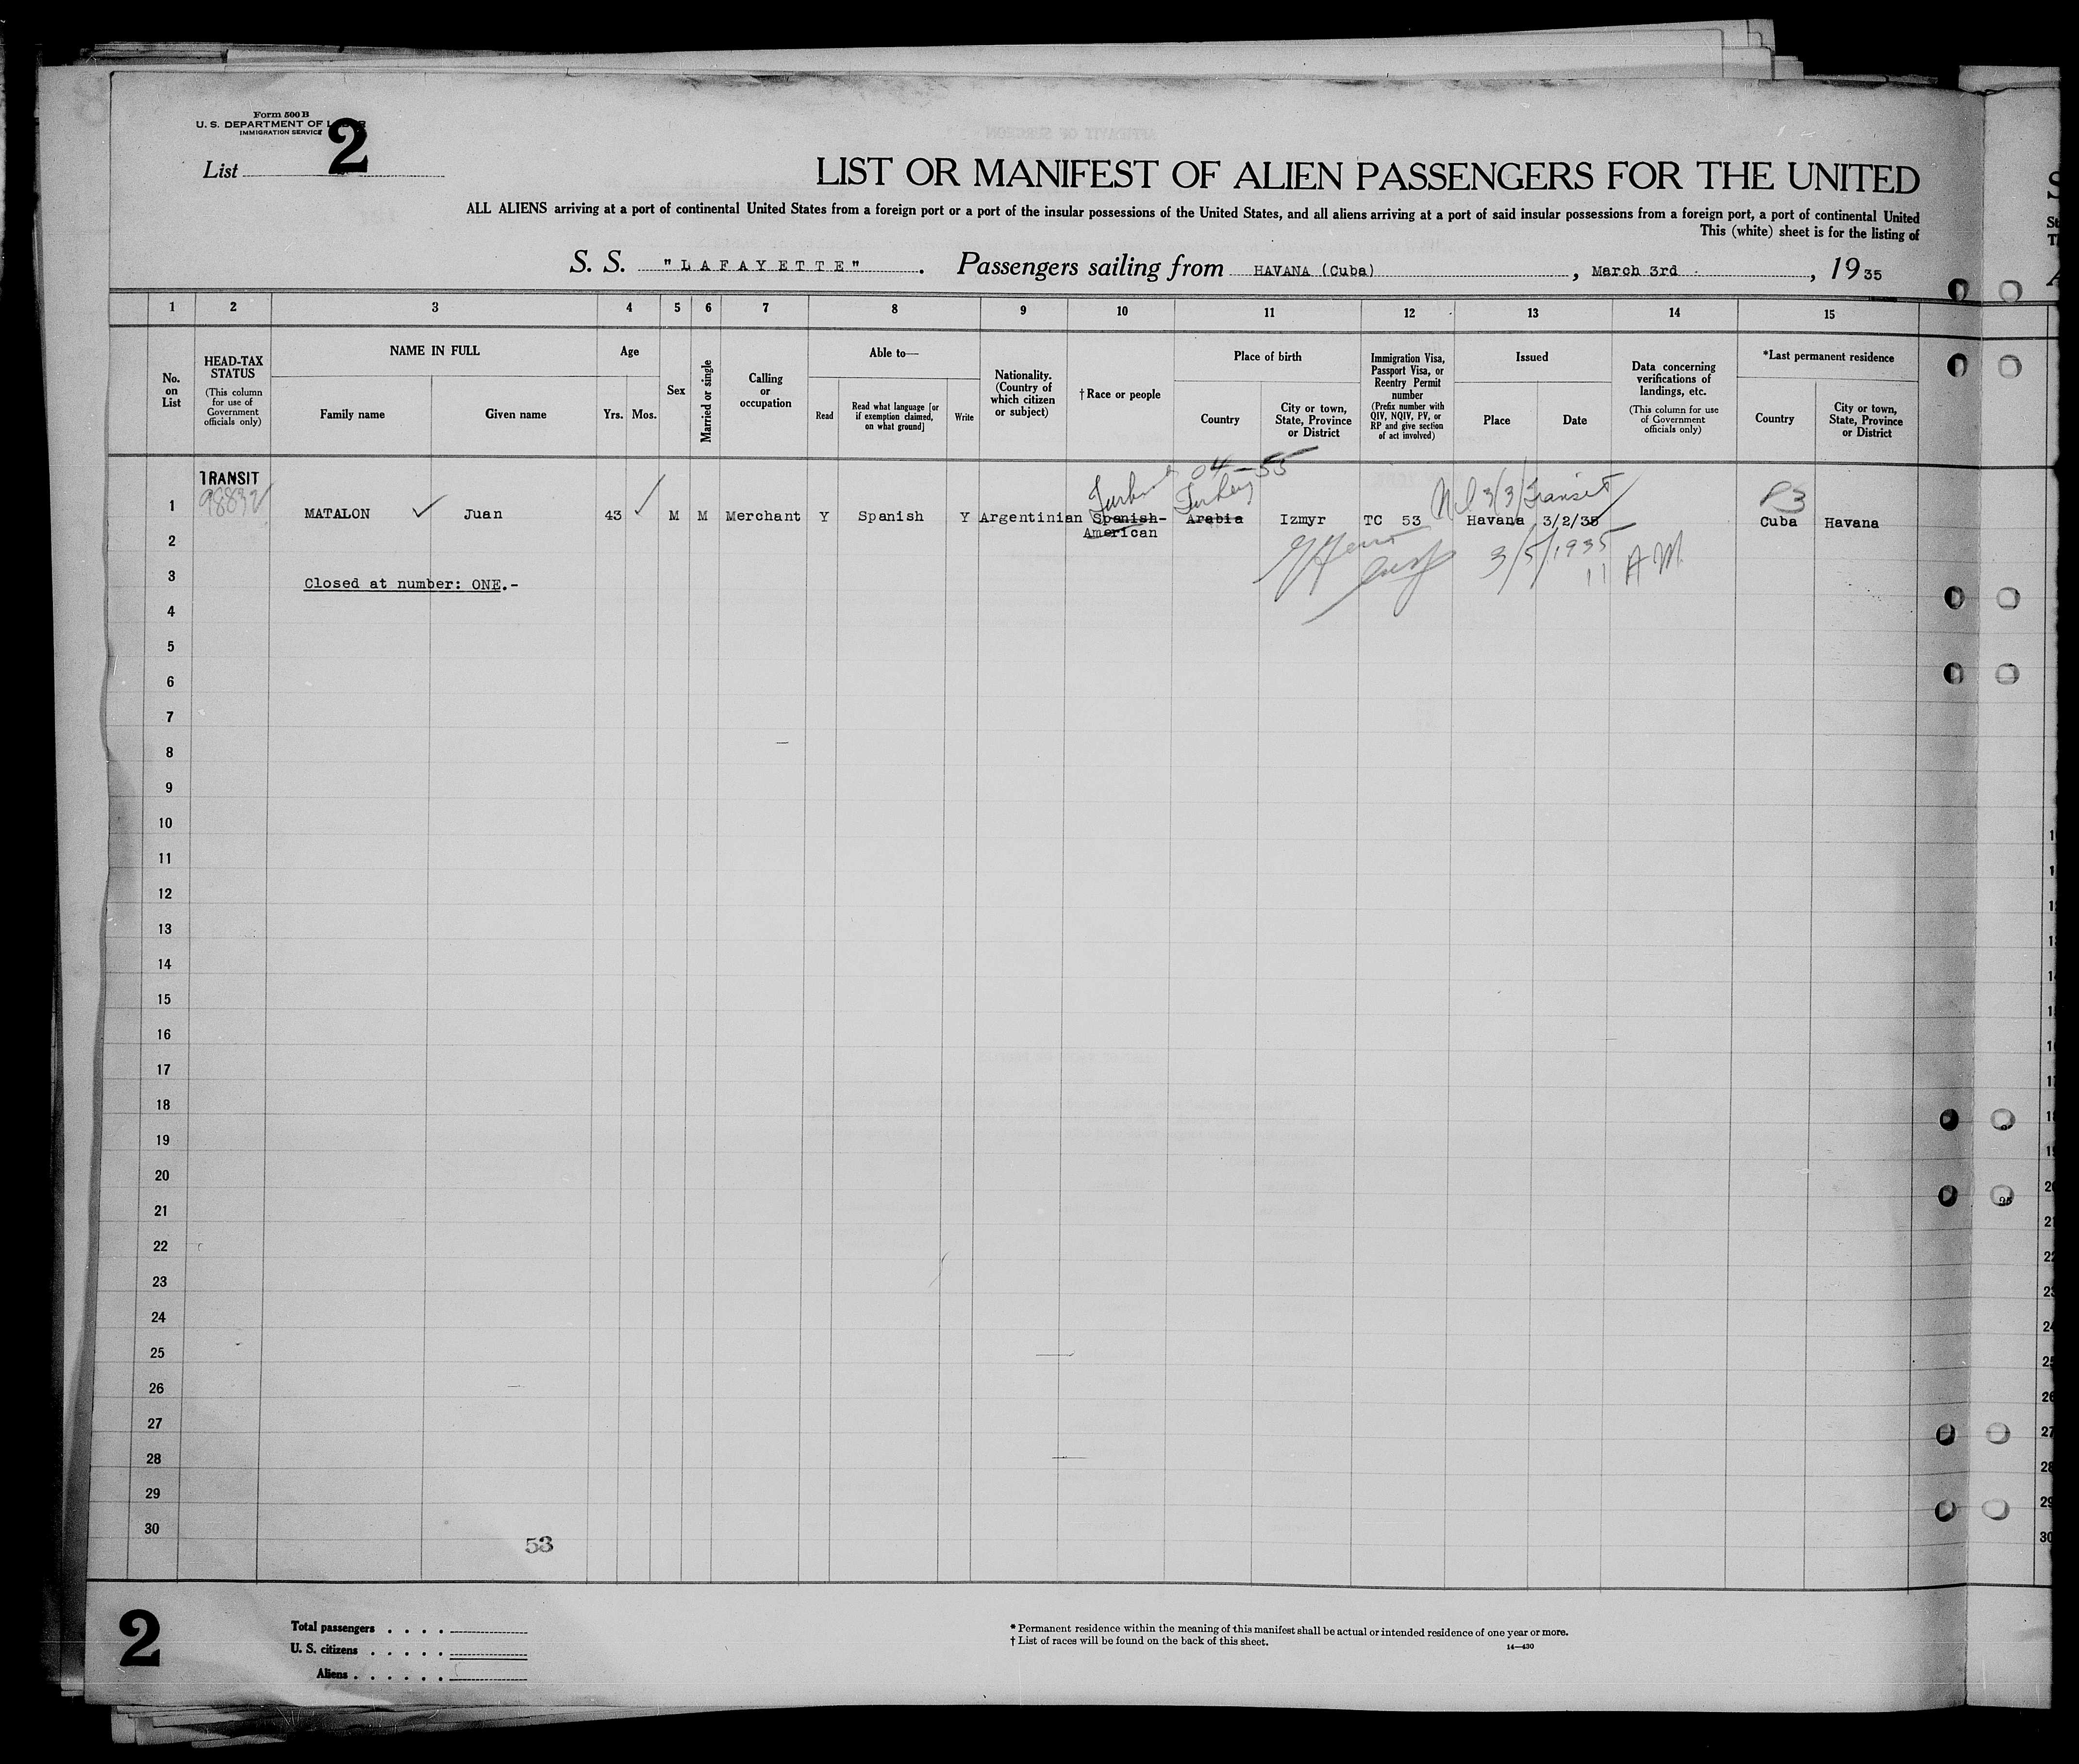 Form 500 B
U. S. DEPARTMENT OF LABOR
IMMIGRATION SERVICE
List 2
LIST OR MANIFEST OF ALIEN PASSENGERS FOR THE UNITED
ALL ALIENS arriving at a port of continental United States from a foreign port or a port of the insular possessions of the United States, and all aliens arriving at a port of said insular possessions from a foreign port, a port of continental United
This (white) sheet is for the listing of
S. S. "LAFAYETTE". Passengers sailing from HAVANA (Cuba), March 3rd, 1935
1 2 3 4 5 6 7 8 9 10 11 12 13 14 15
No. on List
HEAD-TAX STATUS
(This column for use of Government officials only)
NAME IN FULL
Family name
Given name
Age
Yrs. Mos.
Sex
Married or single
Calling or occupation
Able to—
Read
Read what language [or if exemption claimed, on what ground]
Write
Nationality. (Country of which citizen or subject)
† Race or people
Place of birth
Country
City or town, State, Province or District
Immigration Visa, Passport Visa, or Reentry Permit number
(Prefix number with QIV, NQIV, PV, or RP and give section of act involved)
Issued
Place
Date
Data concerning verifications of landings, etc.
(This column for use of Government officials only)
*Last permanent residence
Country
City or town, State, Province or District
TRANSIT
04-55
Turkey
3/3/Transit
P3
1 MATALON Juan 43 M M Merchant Y Spanish Y Argentinian Spanish-American Arabia Izmyr TC 53 Havana 3/2/35 Cuba Havana
2
3/5/1935
11 AM
3 Closed at number: ONE.-
4
5
6
7
8
9
10
11
12
13
14
15
16
17
18
19
20
21
22
23
24
25
26
27
28
29
30
53
2
Total passengers
U. S. citizens
Aliens
* Permanent residence within the meaning of this manifest shall be actual or intended residence of one year or more.
† List of races will be found on the back of this sheet.
14—430